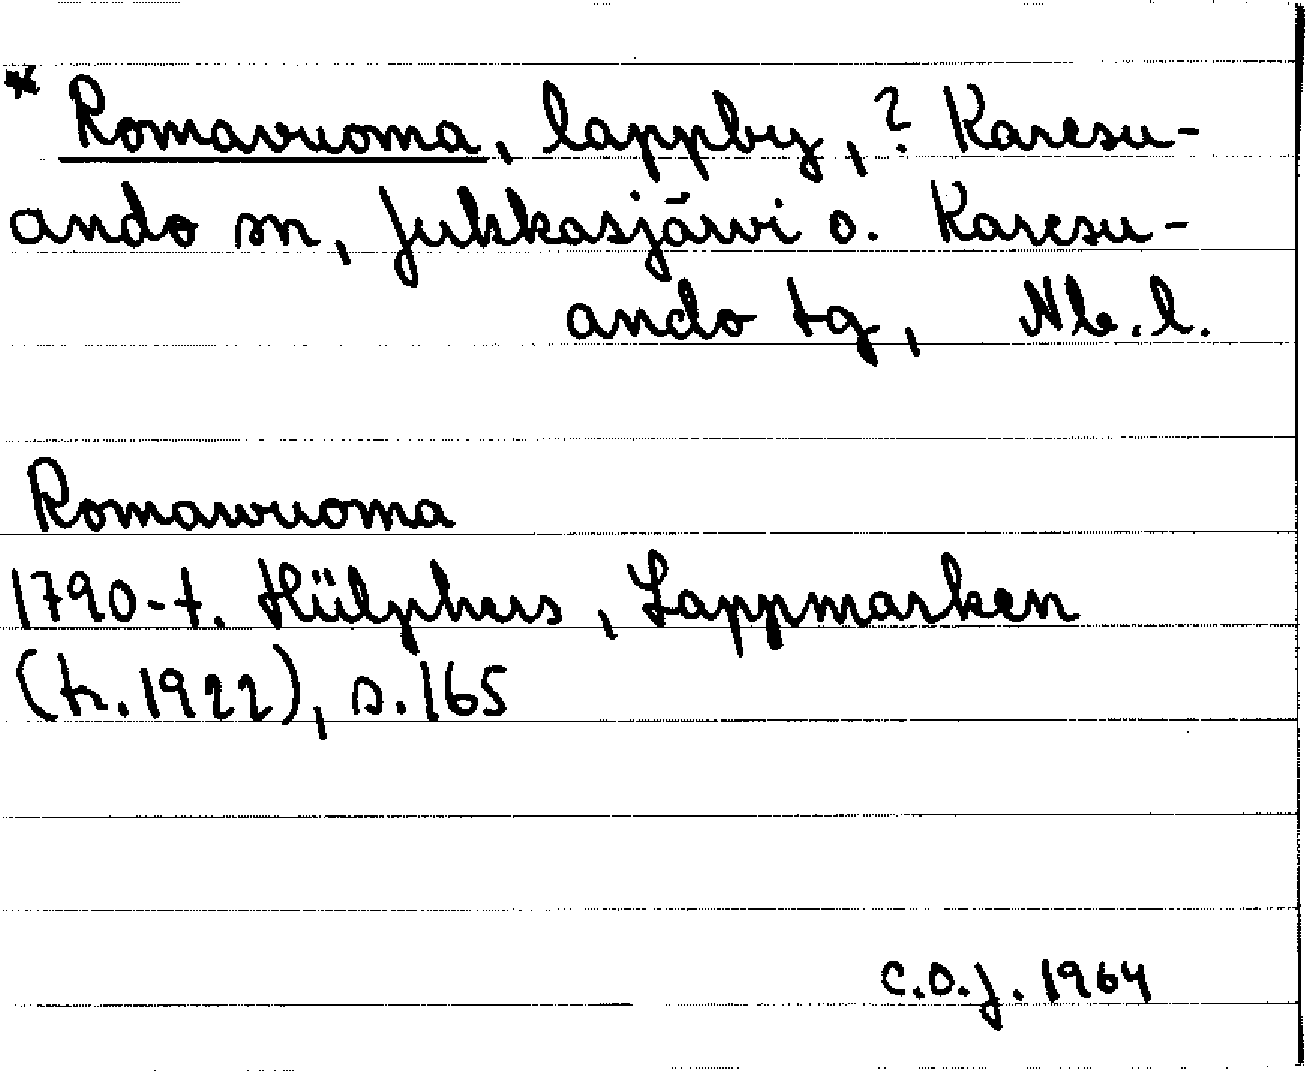 * Romavuoma, lappby, ? Karesu-
ando sn, Jukkasjärvi o. Karesu-
ando tg, Nb. l.
Romawuoma
1790-t. Hülphers, Lappmarken
(tr. 1922), s. 165
C.O.J. 1964